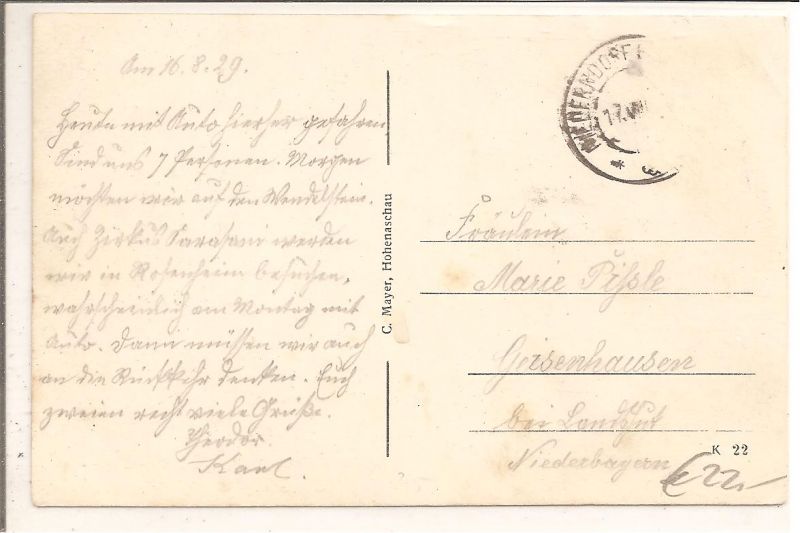 Am 16.8.29.
Heute mit Auto hierher gefahren
Sind uns 7 Personen. Morgen
möchten wir auf den Wendelstein.
Auch Zirkus Sarasani werden
wir in Rosenheim besuchen,
wahrscheinlich am Montag mit
Auto. Dann müssen wir auch
an die Rückkehr denken. Euch
zweien recht viele Grüße.
Theodor
Karl.
C. Mayer, Hohenaschau
NIEDERNDORF
17. VIII
*
Fräulein
Marie
Geisenhausen
bei Landshut
Niederbayern
K 22